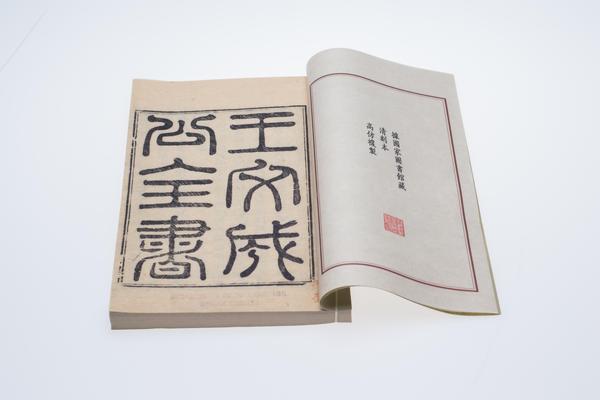 據國家圖書館藏
清刻本
高仿複製
王文成
公全書